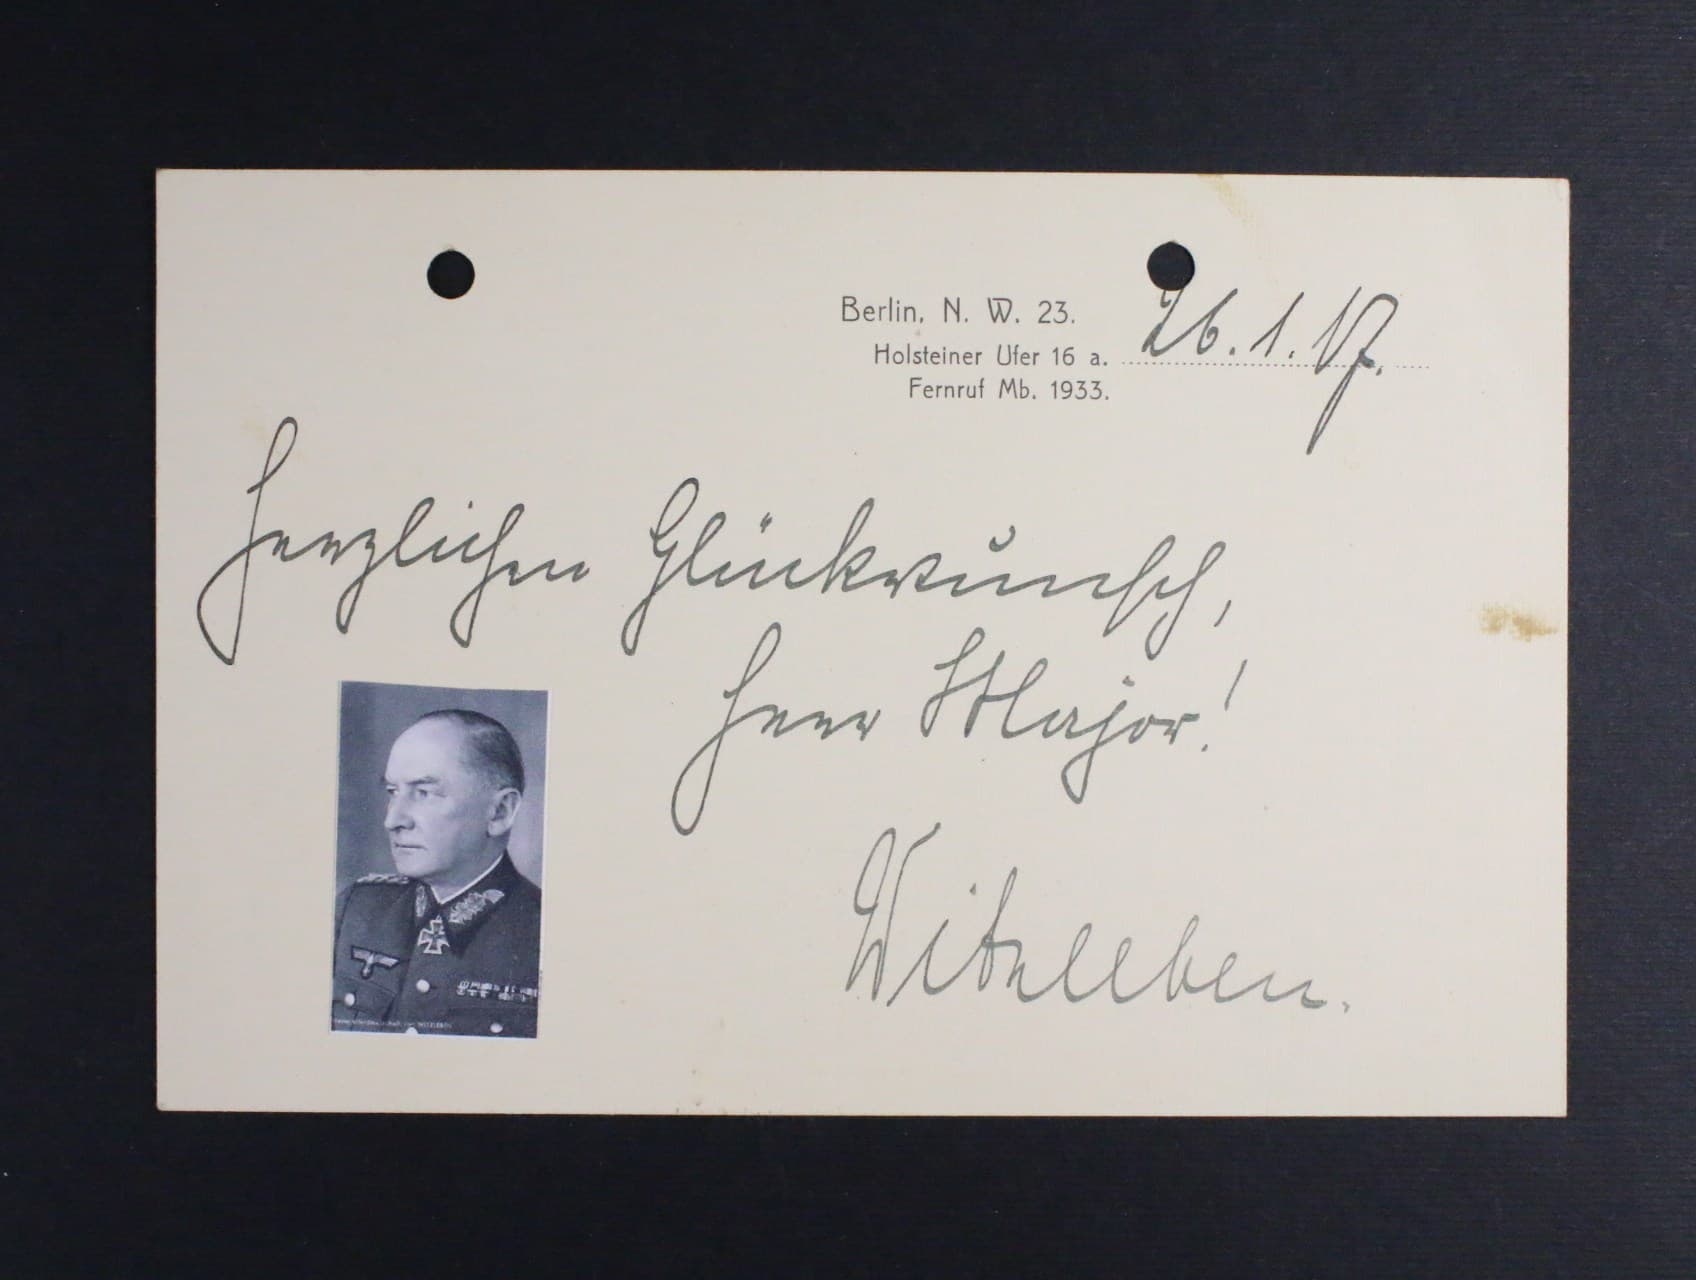 Berlin, N. W. 23.
Holsteiner Ufer 16 a. 26. 1. 17.
Fernruf Mb. 1933.
Herzlichen Glückwunsch,
Herr Major!
Witzleben.